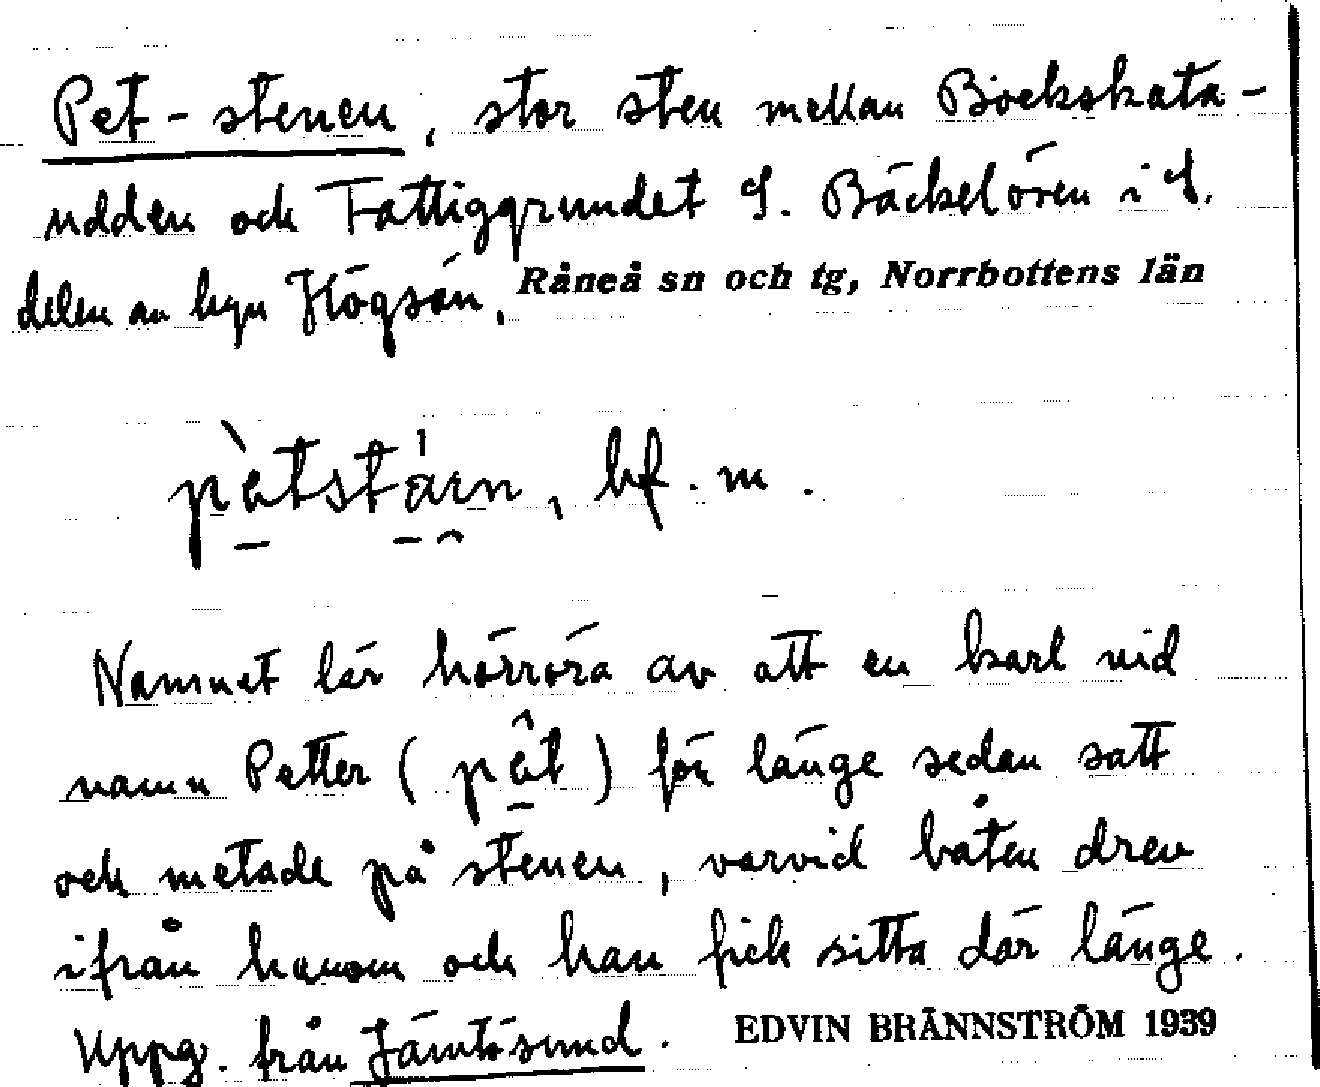 Pet-stenen, stor sten mellan Bockskata-
udden och Fattiggrundet S. Bäckelören i S.
delen av byn Högsön, Råneå sn och tg, Norrbottens län
pètstáın, bf. m.
Namnet lär härröra av att en karl vid
namn Petter (pêt) för länge sedan satt
och metade på stenen, varvid båten drev
ifrån honom och han fick sitta där länge.
Uppg. från Jämtösund. EDVIN BRÄNNSTRÖM 1939